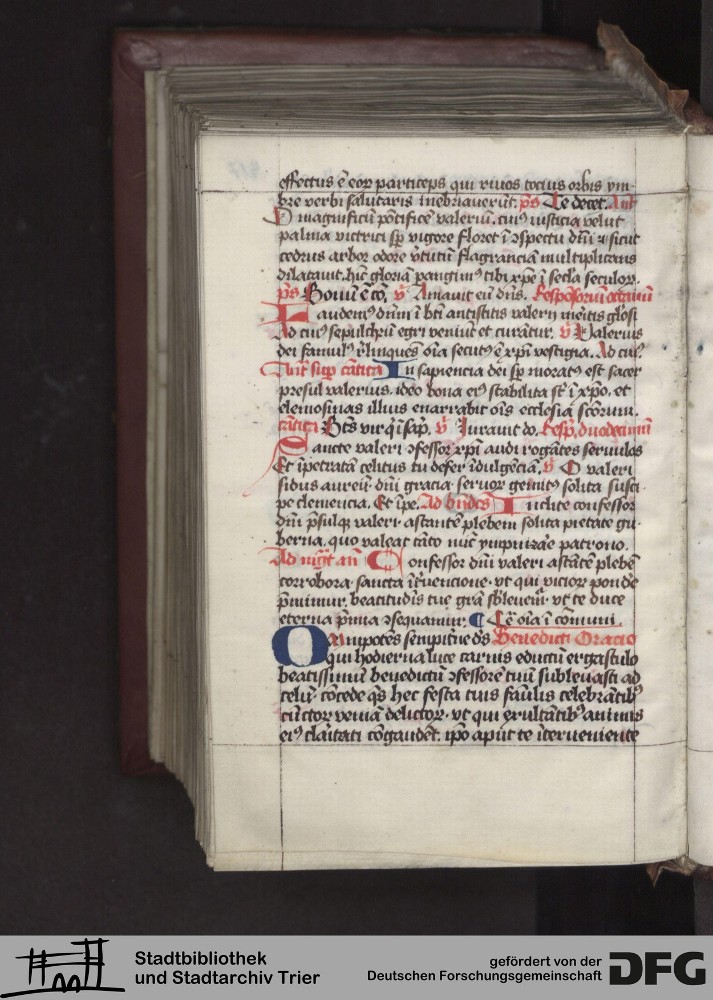 effectus ē eoꝝ particeps qui riuos tocius orbis ym-
bre verbi salutaris inebriauerūt. p̄s Te decet. Ant
O magnificū pōtificē valeriū. cuiꝰ iusticia velut
palma victrici sp̄ vigore floret ī ɔspectu dn̄i ⁊ sicut
cedrus arbor odore v̓tutū flagranciā multiplicans
dilatauit. hīc gloriā pangimꝰ tibi xp̄e ī secla seculoꝝ.
p̄s Bonū ē cō. v̓ Amauit eū dn̄s. Responsoriū octauū
Laudemꝰ dn̄m ī bt̄i antistitis valerii meritis gl̓osi
Ad cuiꝰ sepulchrū egri veniūt et curātur. v̓ Valerius
dei famulꝰ r̓linques oīa secutꝰ ē xp̄i vestigia. Ad cuiꝰ
Ant̄ sup̄ cātica In sapiencia dei sp̄ moratꝰ est sacer
presul valerius. ideo bona eiꝰ stabilita st̄ ī xp̄o. et
elemosinas illius enarrabit oīs ecclesia scōrum.
cātica Bt̄s vir q̓ ī sap̄. v̓ Jurauit do. Resp̄. duodecimū
Sancte valeri ɔfessoꝛ xp̄i audi rogātes seruulos
Et īpetratā celitus tu defer īdulgēciā. v̓ O valeri
sidus aureū dn̄i gracia seruoꝝ gemitꝰ solita susci-
pe clemencia. Et īpe. Ad bn̄dc̄s Inclite confessor
dn̄i p̄sulq̨ valeri astantē plebem solita pietate gu-
berna. quo valeat tāto nūc ympnizāe patrono.
Ad mḡt an̄ Confessor dn̄i valeri astātē plebē
corrobora sancta īt̓uencione. vt qui vicioꝝ ponde
p̄mimur. beatitudīs tue grā sb̓leuem̄. vt te duce
eterna p̄mia ɔsequamur. Cet̄ oīa ī cōmuni
Omnipotēs sempit̓ne ds̄ Benedicti Oracio
qui hodierna luce carnis eductū ergastulo
beatissimū benedictū ɔfessorē tuū subleuasti ad
celū. cōcede qs̄ hec festa tuis fam̄lis celebrātibꝰ
cūctoꝝ veniā delictoꝝ. vt qui exultātibꝰ animis
eiꝰ claritati cōgaudēt. ip̄o aput te īterueniente
Stadtbibliothek
und Stadtarchiv Trier
gefördert von der
Deutschen Forschungsgemeinschaft DFG